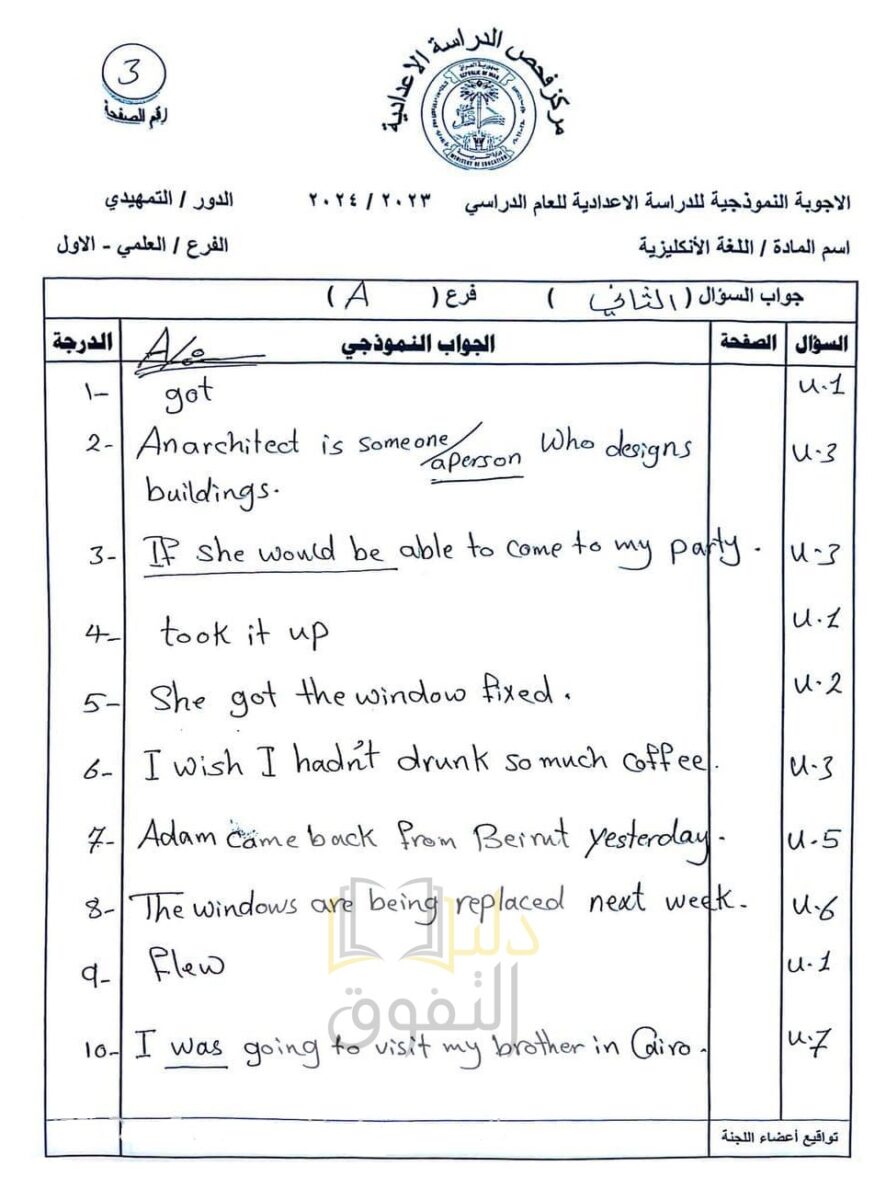 3
رقم الصفحة
مركز فحص الدراسة الاعدادية
REPUBLIC OF IRAQ
MINISTRY OF EDUCATION
الاجوبة النموذجية للدراسة الاعدادية للعام الدراسي ٢٠٢٣ / ٢٠٢٤ الدور / التمهيدي
اسم المادة / اللغة الأنكليزية الفرع / العلمي - الاول
جواب السؤال ( الثاني ) فرع ( A )
السؤال الصفحة الجواب النموذجي الدرجة
1- got U.1
2- Anarchitect is someone/aperson who designs U.3
buildings.
3- If she would be able to come to my party. U.3
4- took it up U.1
5- She got the window fixed. U.2
6- I wish I hadn't drunk so much coffee. U.3
7- Adam came back from Beirut yesterday. U.5
8- The windows are being replaced next week. U.6
9- flew U.1
10- I was going to visit my brother in Cairo. U.7
دليل
التفوق
تواقيع أعضاء اللجنة